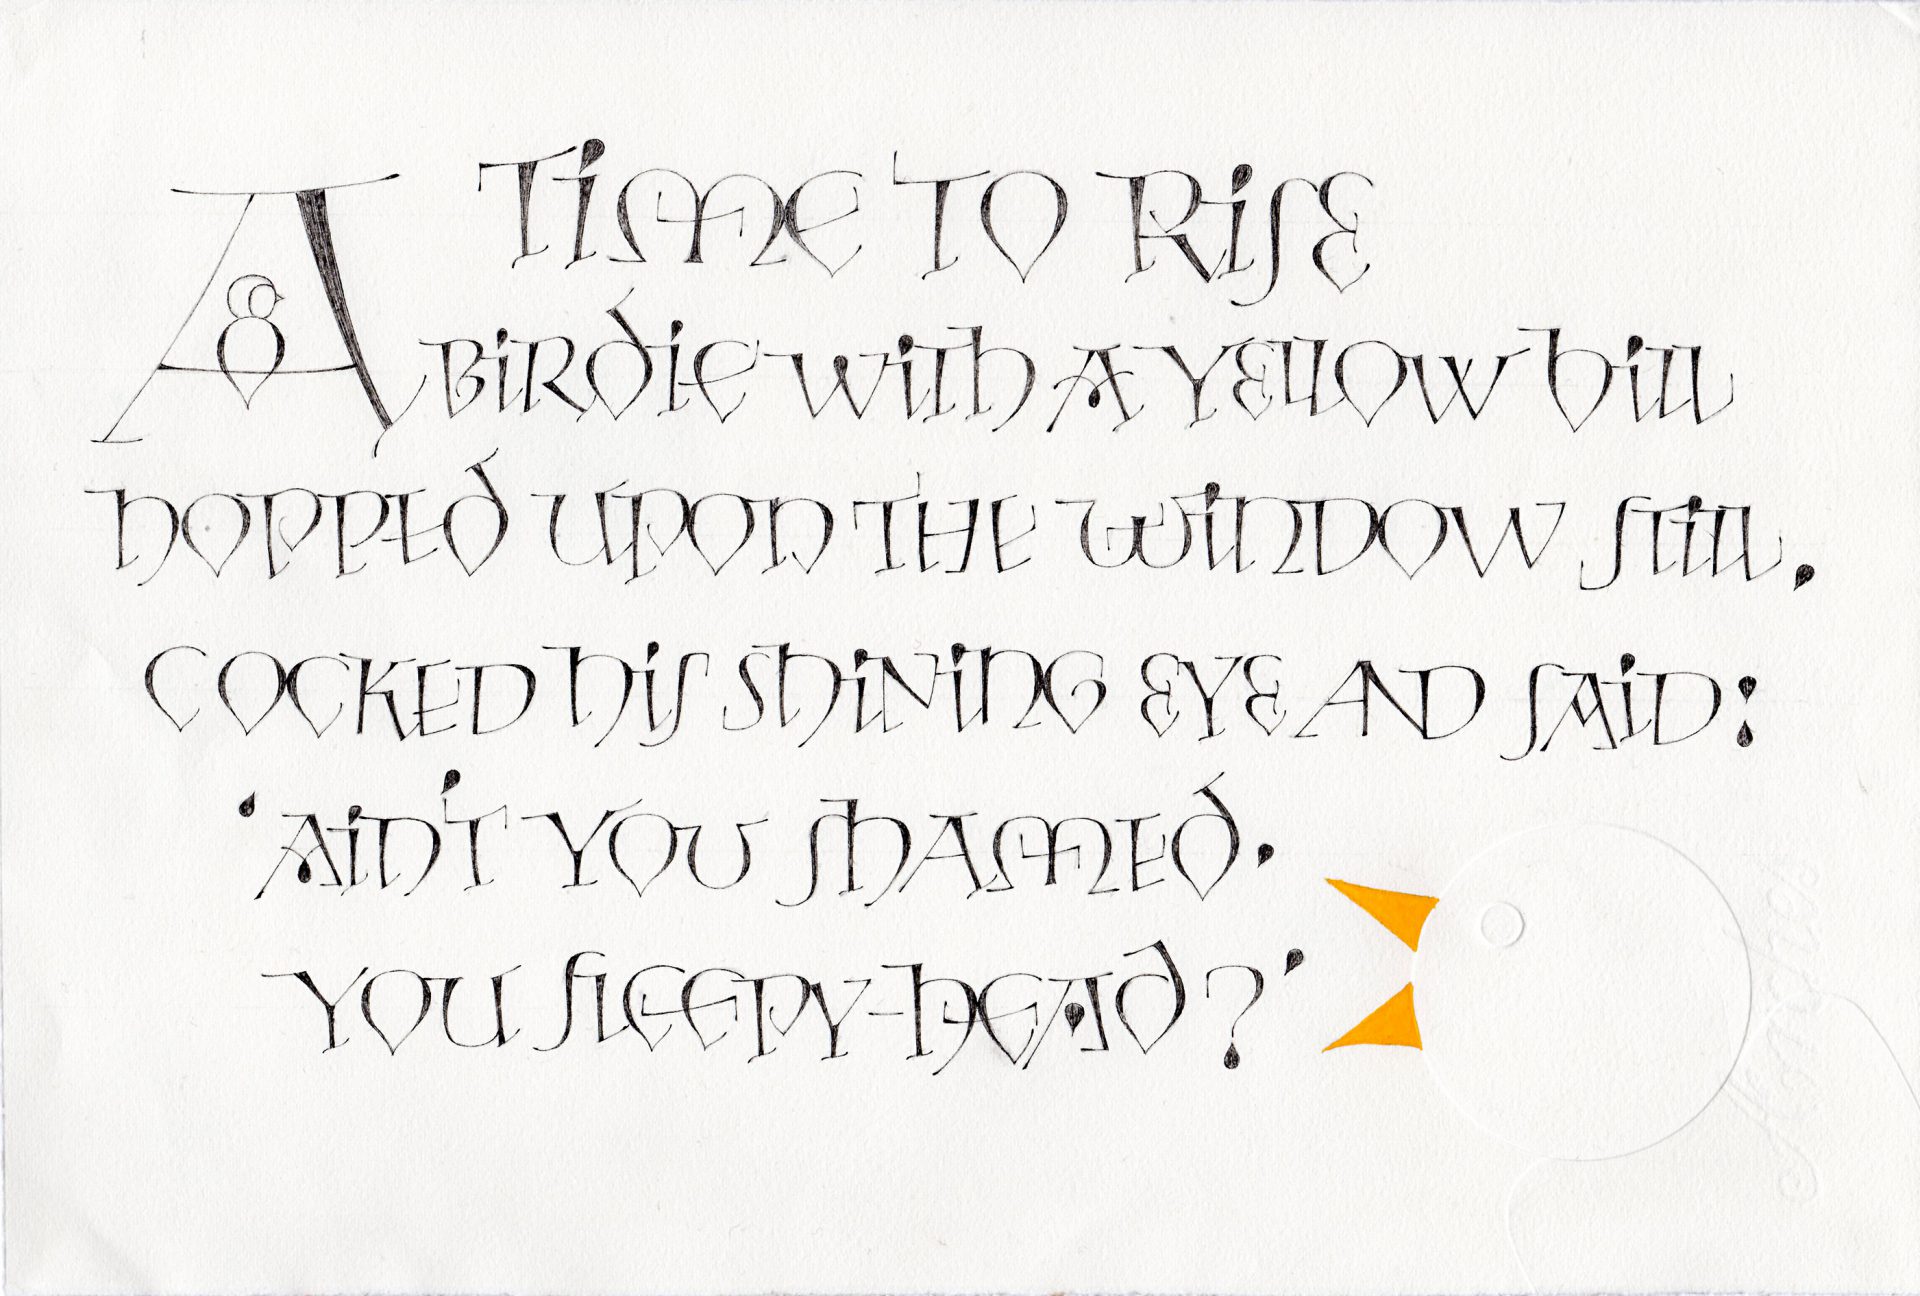 TiME TO RiSE
A BiRDiE WiTh A YELLOW biLL
hOPPED UPON THE WiNDOW STiLL,
COCKED hiS ShiNiNG EYE AND SAiD:
‘AiN'T YOU ShAMED,
YOU SLEEPY-hEAD?’